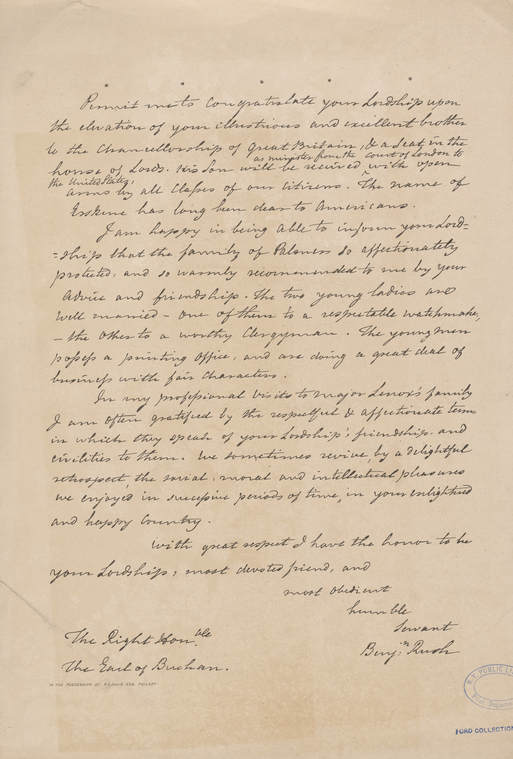 Permit me to Congratulate your Lordship upon
the elevation of your illustrious and excellent brother
to the Chancellorship of great Britain, & a seat in the
house of Lords. His Son will be received with open
as minister from the court of London to
the United States,
arms by all Classes of our citizens. The name of
Erskine has long been dear to Americans.
I am happy in being able to inform your Lord=
=ship that the family of Palmers so affectionately
protected, and so warmly recommended to me by your
Advice and friendship. The two young ladies are
well married – one of them to a respectable watchmaker,
– the other to a worthy Clergyman. The young men
possess a printing office, and are doing a great deal of
business with fair characters.
In my professional visits to major Lenox's family
I am often gratified by the respectful & affectionate terms
in which they speak of your Lordship's friendship, and
civilities to them. We sometimes revive by a delightful
retrospect the social, moral and intellectual pleasures
we enjoyed in successive periods of time, in your enlightened
and happy Country.
With great respect I have the honor to be
your Lordship's most devoted friend, and
most obedient
humble
Servant
Benjn Rush
The Right Honble
The Earl of Buchan.
IN THE POSSESSION OF
N.Y. PUBLIC
FORD COLLECTION